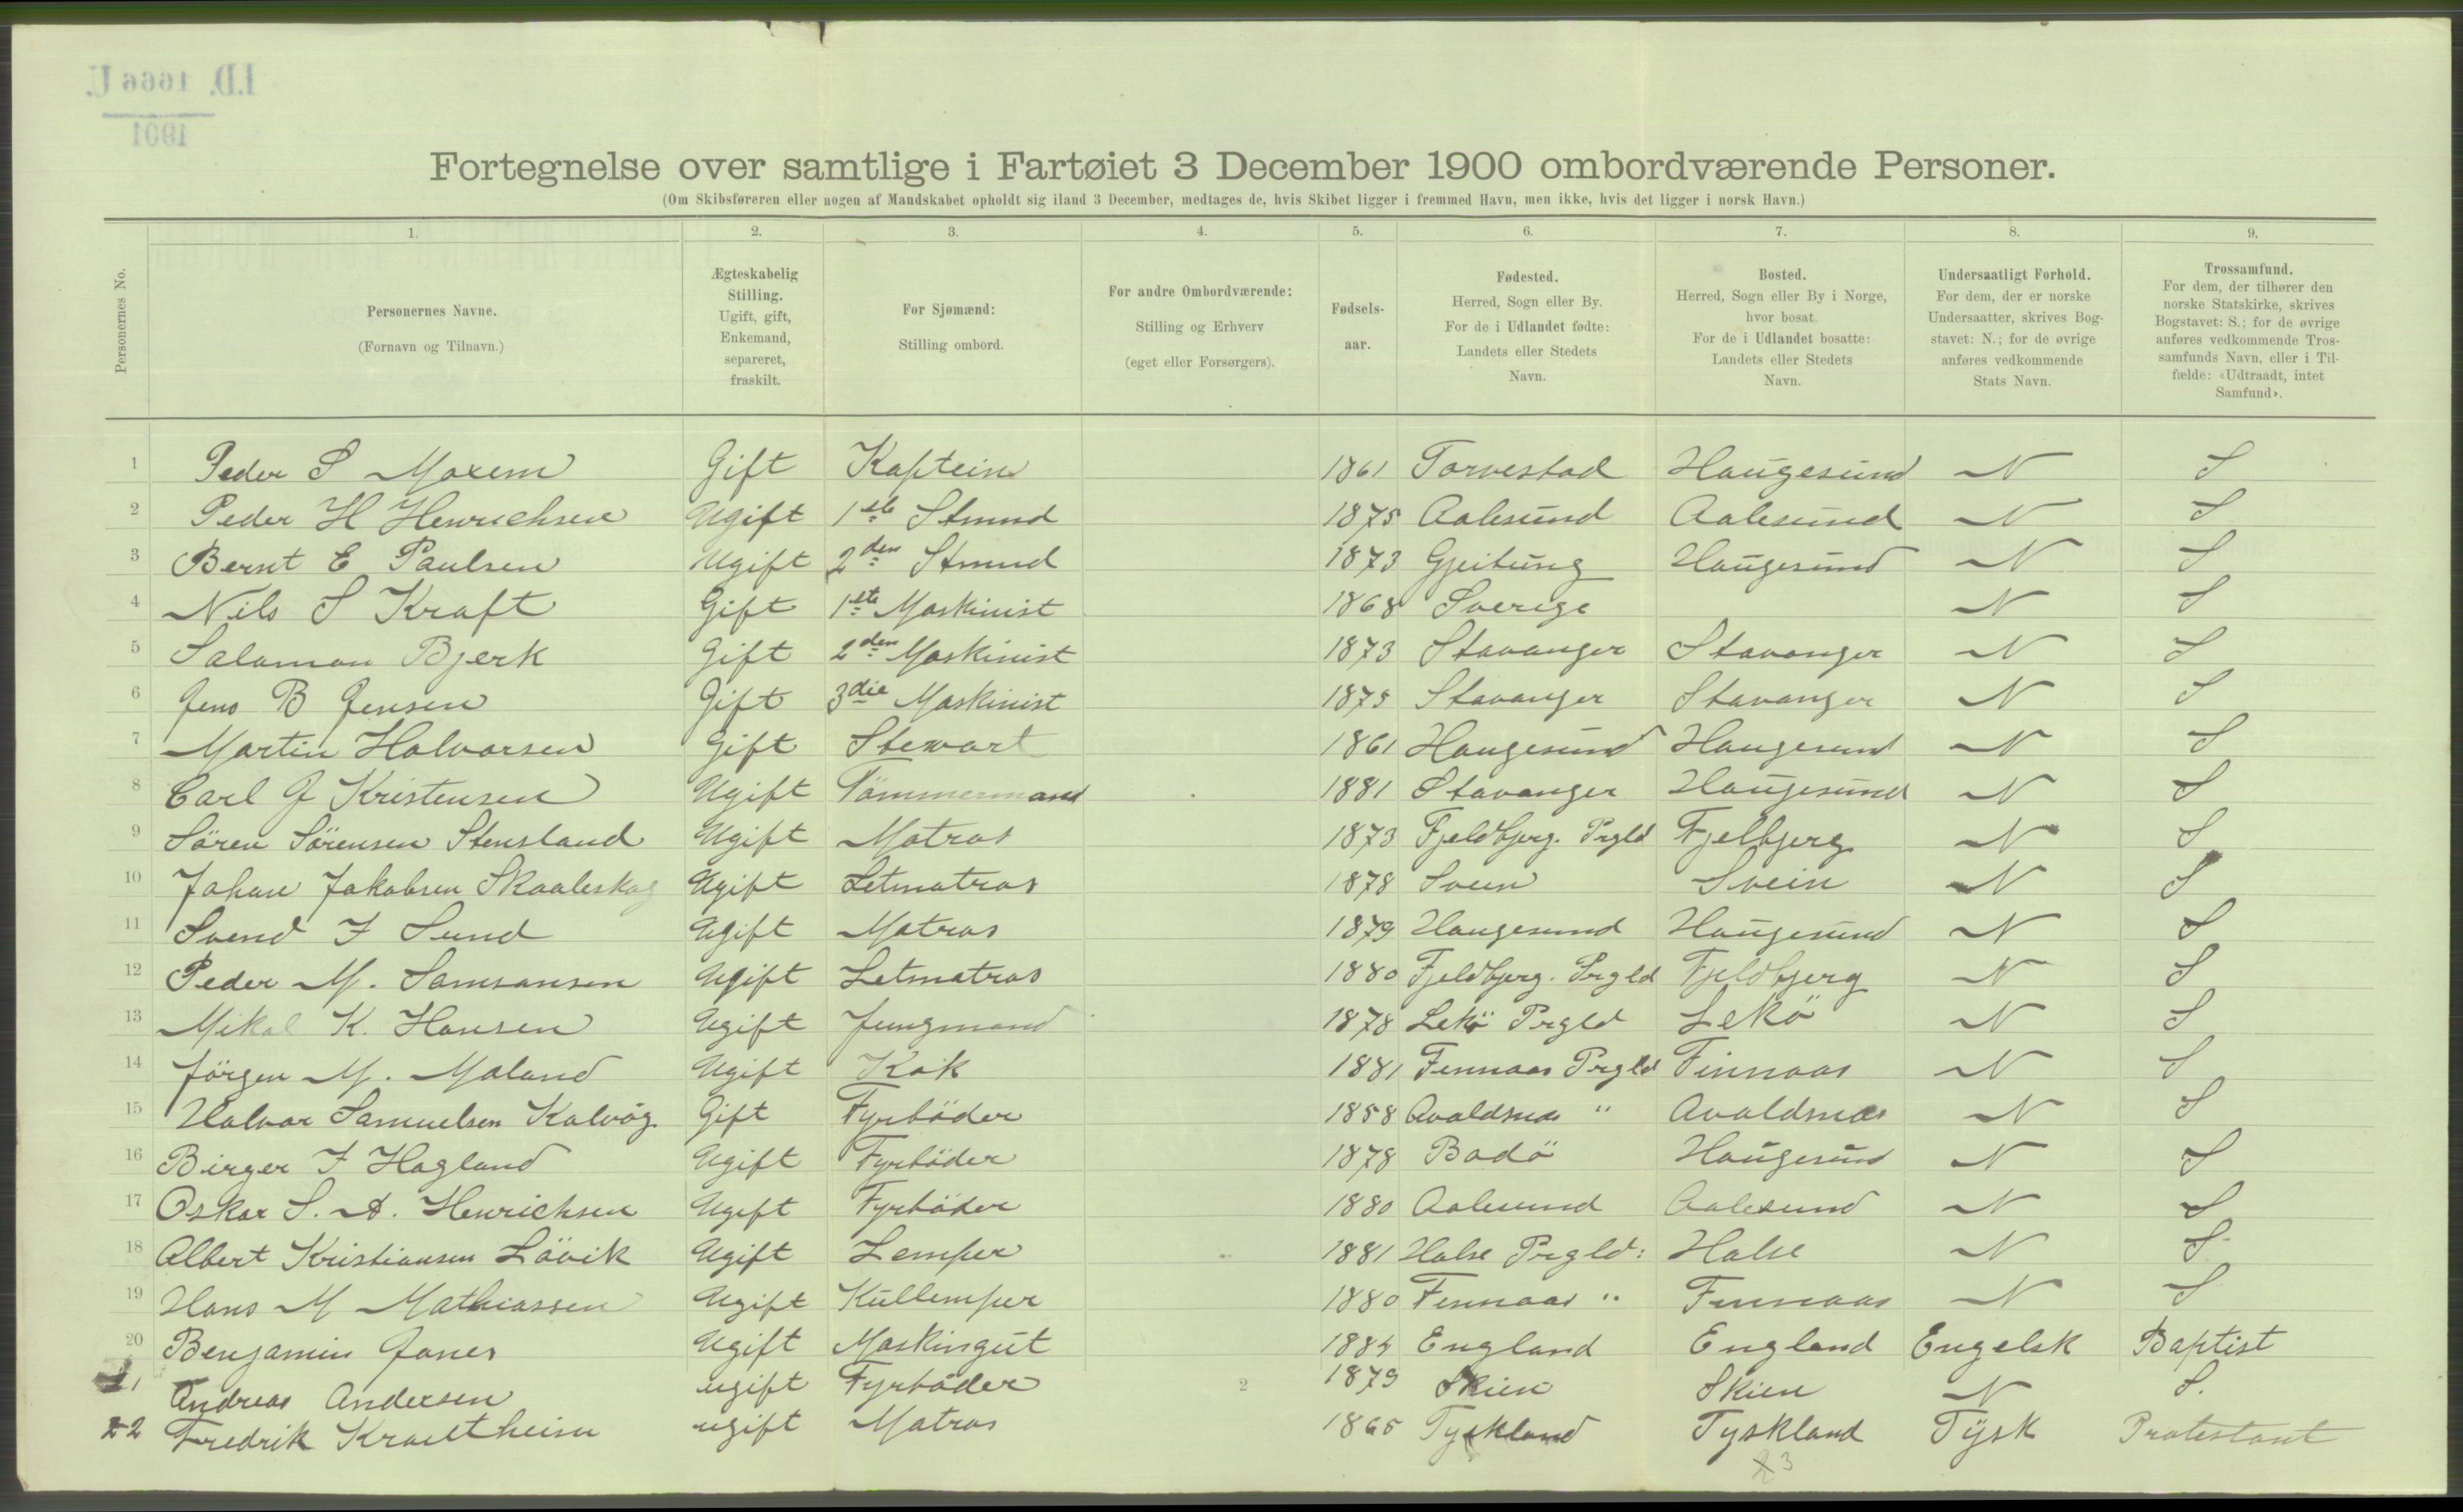 I.D. 1666 U.
1901
Fortegnelse over samtlige i Fartøiet 3 December 1900 ombordværende Personer.
(Om Skibsføreren eller nogen af Mandskabet opholdt sig iland 3 December, medtages de, hvis Skibet ligger i fremmed Havn, men ikke, hvis det ligger i norsk Havn.)
1. 2. 3. 4. 5. 6. 7. 8. 9.
Personernes No.
Personernes Navne.
(Fornavn og Tilnavn.)
Ægteskabelig
Stilling.
Ugift, gift,
Enkemand,
separeret,
fraskilt.
For Sjømænd:
Stilling ombord.
For andre Ombordværende:
Stilling og Erhverv
(eget eller Forsørgers).
Fødsels-
aar.
Fødested.
Herred, Sogn eller By.
For de i Udlandet fødte:
Landets eller Stedets
Navn.
Bosted.
Herred, Sogn eller By i Norge,
hvor bosat.
For de i Udlandet bosatte:
Landets eller Stedets
Navn.
Undersaatligt Forhold.
For dem, der er norske
Undersaatter, skrives Bog-
stavet: N.; for de øvrige
anføres vedkommende
Stats Navn.
Trossamfund.
For dem, der tilhører den
norske Statskirke, skrives
Bogstavet: S.; for de øvrige
anføres vedkommende Tros-
samfunds Navn, eller i Til-
fælde: «Udtraadt, intet
Samfund».
1 Peder S Moxem Gift Kaptein 1861 Torvestad Haugesund N S
2 Peder H Henrichsen Ugift 1ste Stmnd 1875 Aalesund Aalesund N S
3 Bernt E Paulsen Ugift 2den Stmnd 1873 Gjeitung Haugesund N S
4 Nils S Kraft Gift 1ste Maskinist 1868 Sverige N S
5 Salamon Bjerk Gift 2den Maskinist 1873 Stavanger Stavanger N S
6 Jens B Jensen Gift 3die Maskinist 1875 Stavanger Stavanger N S
7 Martin Halvorsen Gift Stewart 1861 Haugesund Haugesund N S
8 Carl J Kristensen Ugift Tömmermand 1881 Stavanger Haugesund N S
9 Sören Sörensen Stensland Ugift Matros 1873 Fjeldbjerg. Prgld Fjelbjerg N S
10 Johan Jakobsen Skaaleskog Ugift Letmatros 1878 Svein Svein N S
11 Svend I Sund Ugift Matros 1879 Haugesund Haugesund N S
12 Peder M. Samsonsen Ugift Letmatros 1880 Fjeldbjerg. Prgld Fjeldbjerg N S
13 Mikal K. Hansen Ugift Jungmand 1878 Lekö Prgld Lekö N S
14 Jörgen M. Maland Ugift Kok 1881 Finnaas Prgld Finnaas N S
15 Halvor Samuelsen Kalvög Gift Fyrböder 1858 Avaldsnæs " Avaldsnæs N S
16 Birger I Hagland Ugift Fyrböder 1878 Bodö Haugesund N S
17 Oskar S. A. Henrichsen Ugift Fyrböder 1880 Aalesund Aalesund N S
18 Albert Kristiansen Lövik Ugift Lemper 1881 Halse Prgld: Halse N S
19 Hans M Mathiassen Ugift Kullemper 1880 Finnaas " Finnaas N S
20 Benjamin Jones Ugift Maskingut 1884 England England Engelsk Baptist
21 Andreas Andersen ugift Fyrböder 2 1879 Skien Skien N S.
22 Fredrik Krautheim ugift Matros 1865 Tyskland Tyskland Tysk Protestant
23